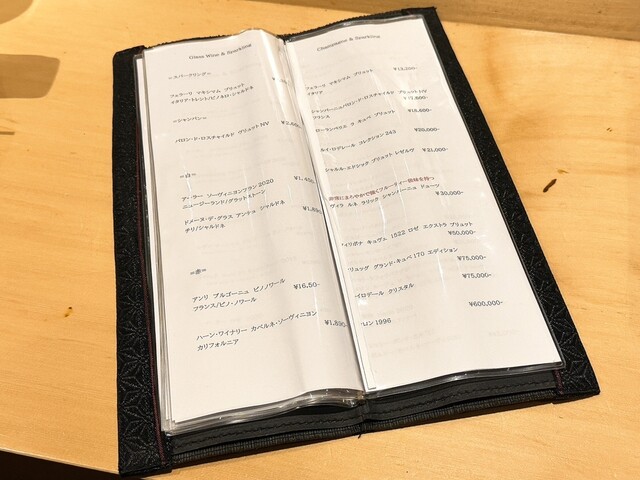 Glass Wine & Sparkling
<スパークリング>
フェラーリ マキシマム ブリュット
イタリア・トレント/ピノネロ・シャルドネ
<シャンパン>
バロン・ド・ロスチャイルド ブリュットNV ¥2,60
<白>
アーラー ソーヴィニヨンブラン2020 ¥1,450
ニュージーランド/グラットストーン
ドメーヌ・デ・グラス アンデュ シャルドネ ¥1,650
チリ/シャルドネ
<赤>
アンリ ブルゴーニュ ピノノワール ¥16,50-
フランス/ピノ・ノワール
ハーン・ワイナリー カベルネ・ソーヴィニヨン ¥1,890-
カリフォルニア
Champagne & Sparkling
フェラーリ マキシマム ブリュット ¥13,200-
イタリア
シャンパーニュバロン・ド・ロスチャイルド ブリュットNV
フランス ¥17,600-
ローランペリエ ラ キュベ ブリュット ¥18,600-
ルイ・ロデレール コレクション 243 ¥20,000-
シャルル・エドシック ブリュット レゼルヴ ¥21,000-
非常にまろやかで強くフルーティー個性を持つ
ヴィラ ルネ クリック シャンパーニュ ドューツ
¥30,000-
フィリポナ キュヴェ 1522 ロゼ エクストラ ブリュット
¥50,000-
リュッグ グランド・キュベ 170 エディション
¥75,000-
¥75,000-
イロデール クリスタル
¥600,000-
ロン1996